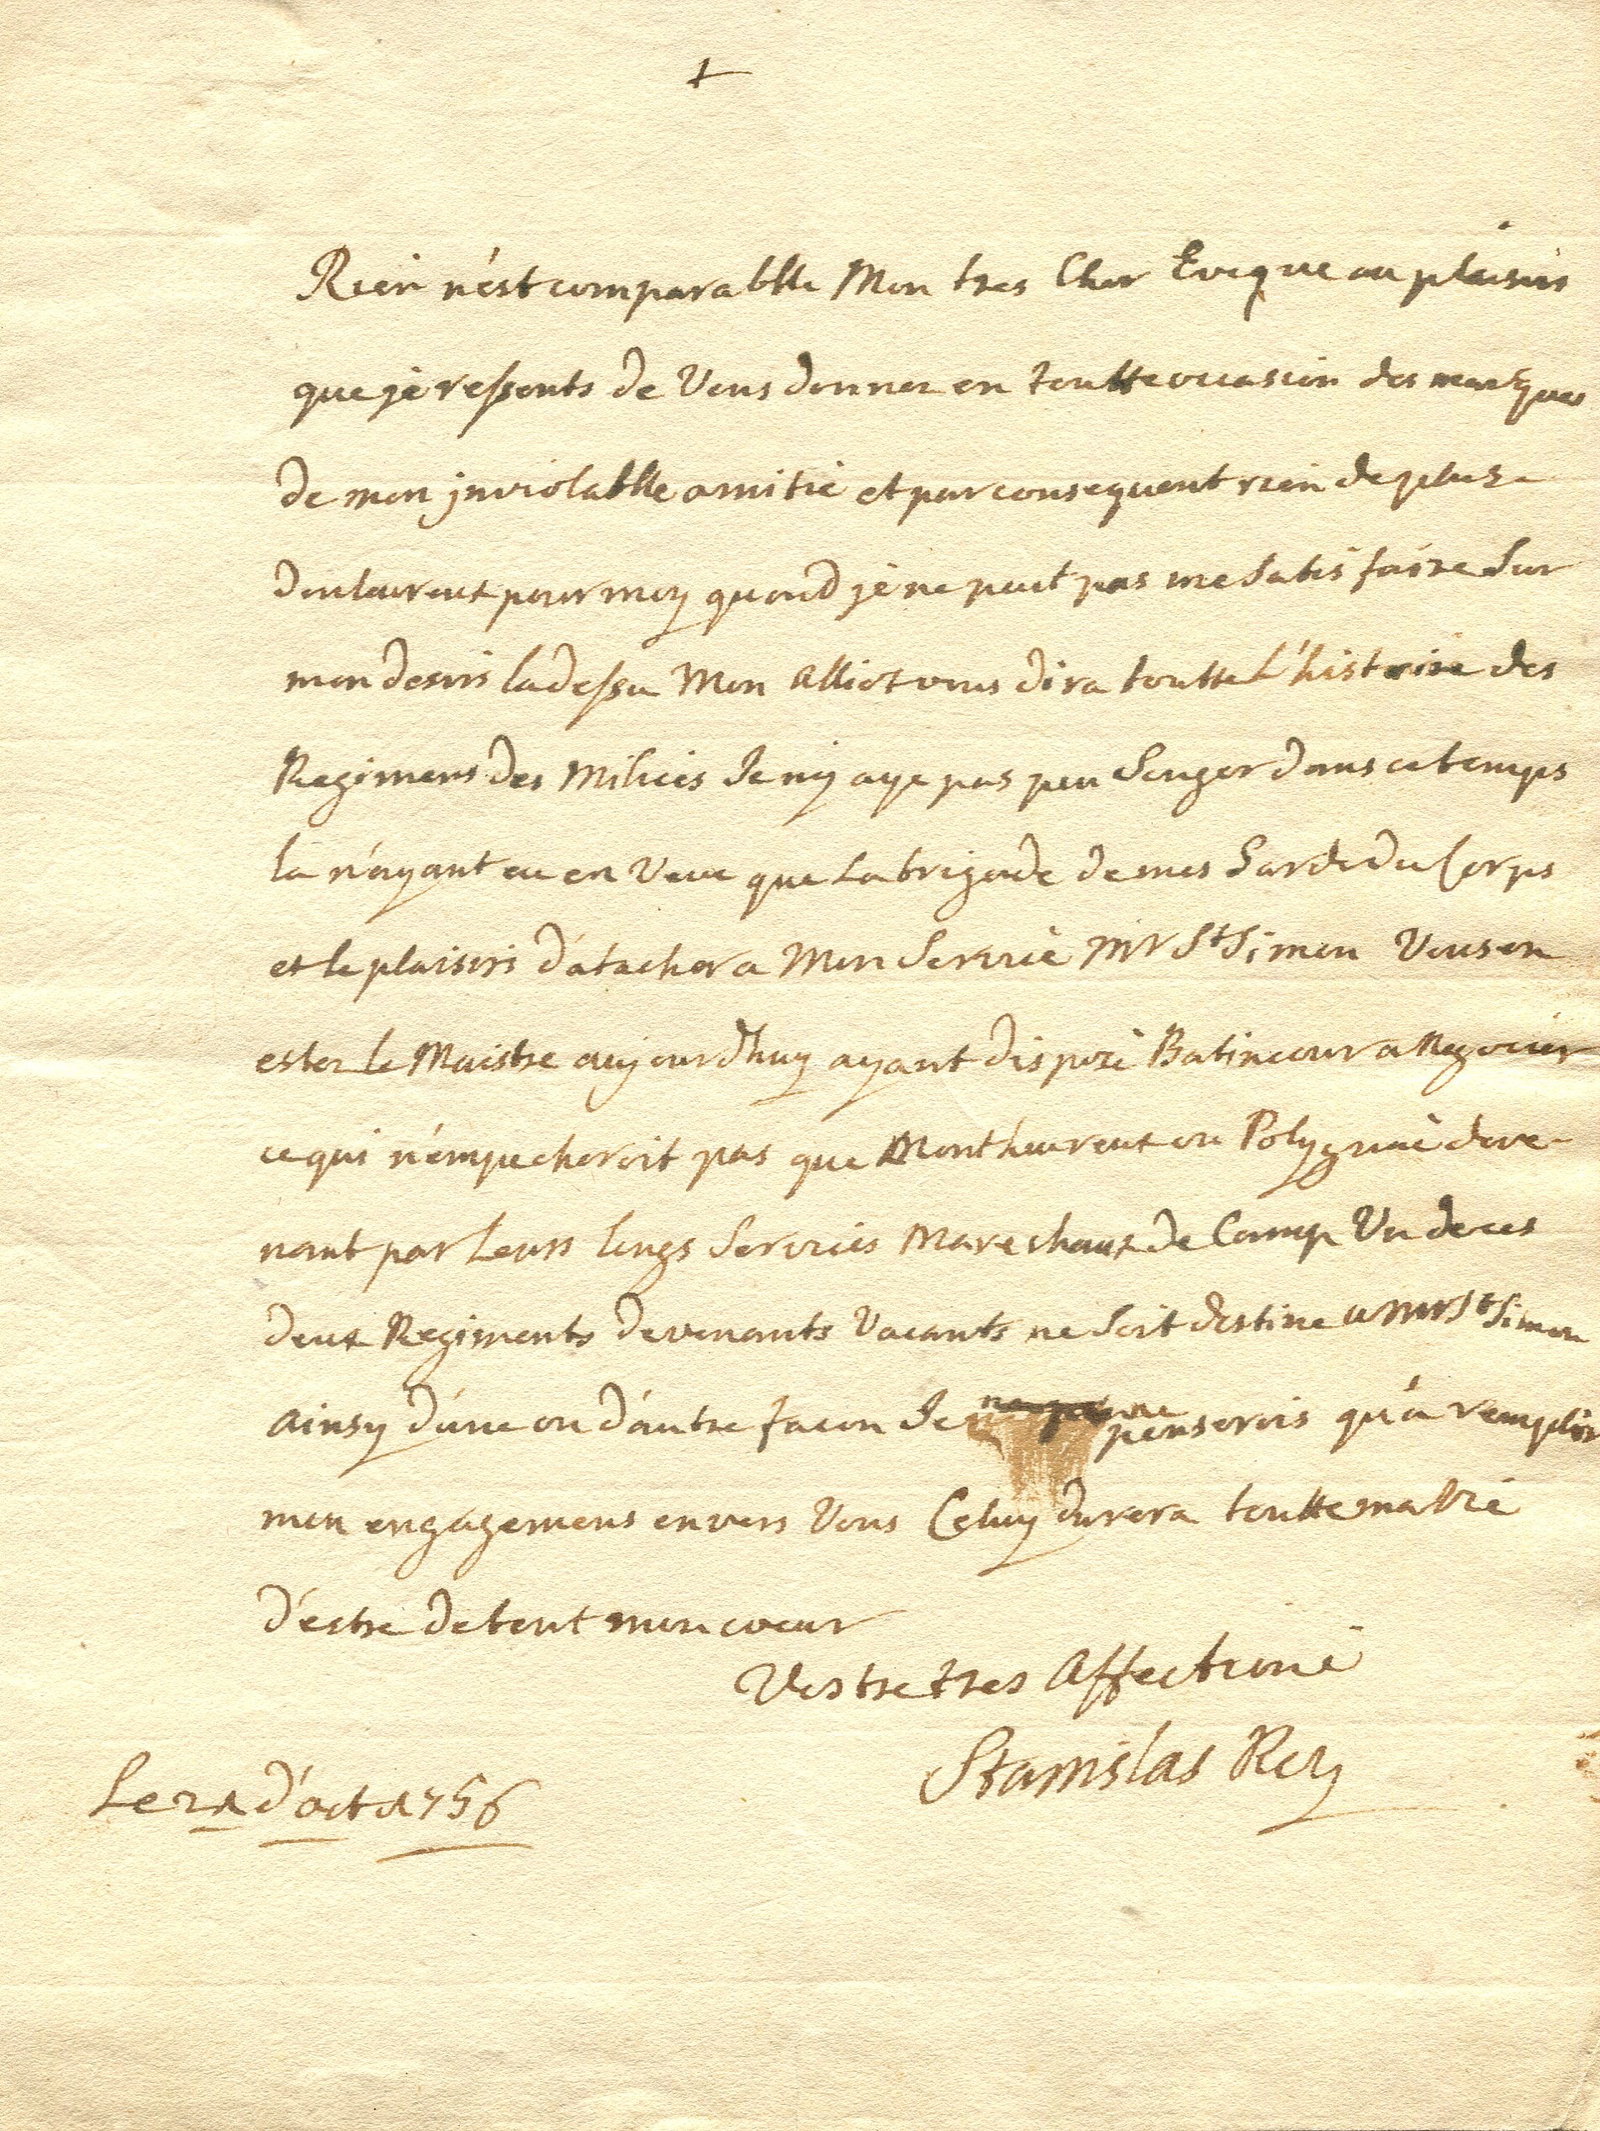 +
Rien n'est comparablle Mon tres Cher Eveque au plaisirs
que je ressents de Vous donner en toutte occasion des marques
de mon jnviolablle amitié et par consequent rien de plus
douleureux pour moy quand je ne peut pas me Satisfaire Sur
mon desirs ladessu Mon Alliot vous dira toutte L'histoire des
Regimens des Milices Je n'y aye pas peu Songer dans ce temps
la n'ayant eu en Veue que La brigade de mes Garde du Corps
et le plaisirs d'atacher a Mon Service Mr St Simon Vous en
estez le Maistre aujourd'huy ayant disposé Batincour a Negocier
ce qui n'empecheroit pas que Montheureux ou Polygnac deve-
nant par Leurs longs Services Marechaux de Camp Un de ces
deux Regiments devenants Vacants ne Soit destine a Mr St Simon
ainsy d'une ou d'autre facon Je ne penserois qu'a remplir
mon engagemens envers Vous Celuy durera toutte ma Vie
d'estre de tout mon coeur
Vostre tres Affectioné
Stanislas Roy
Le d'oct 1756